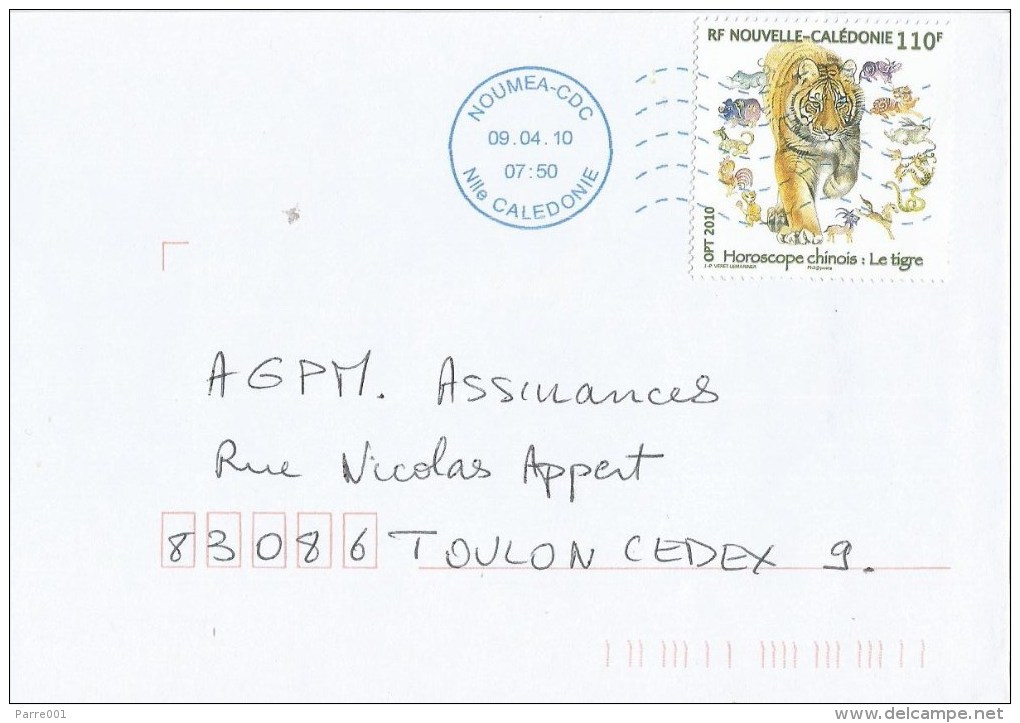 RF NOUVELLE-CALÉDONIE 110F
NOUMEA-CDC
09.04.10
07:50
Nlle CALEDONIE
OPT 2010
Horoscope chinois : Le tigre
AGPM. Assurances
Rue Nicolas Appert
83086 TOULON CEDEX 9.
Parre001
www.delcampe.net